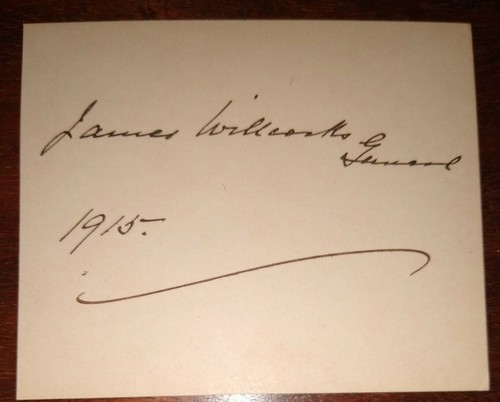 James Willcocks
General
1915.